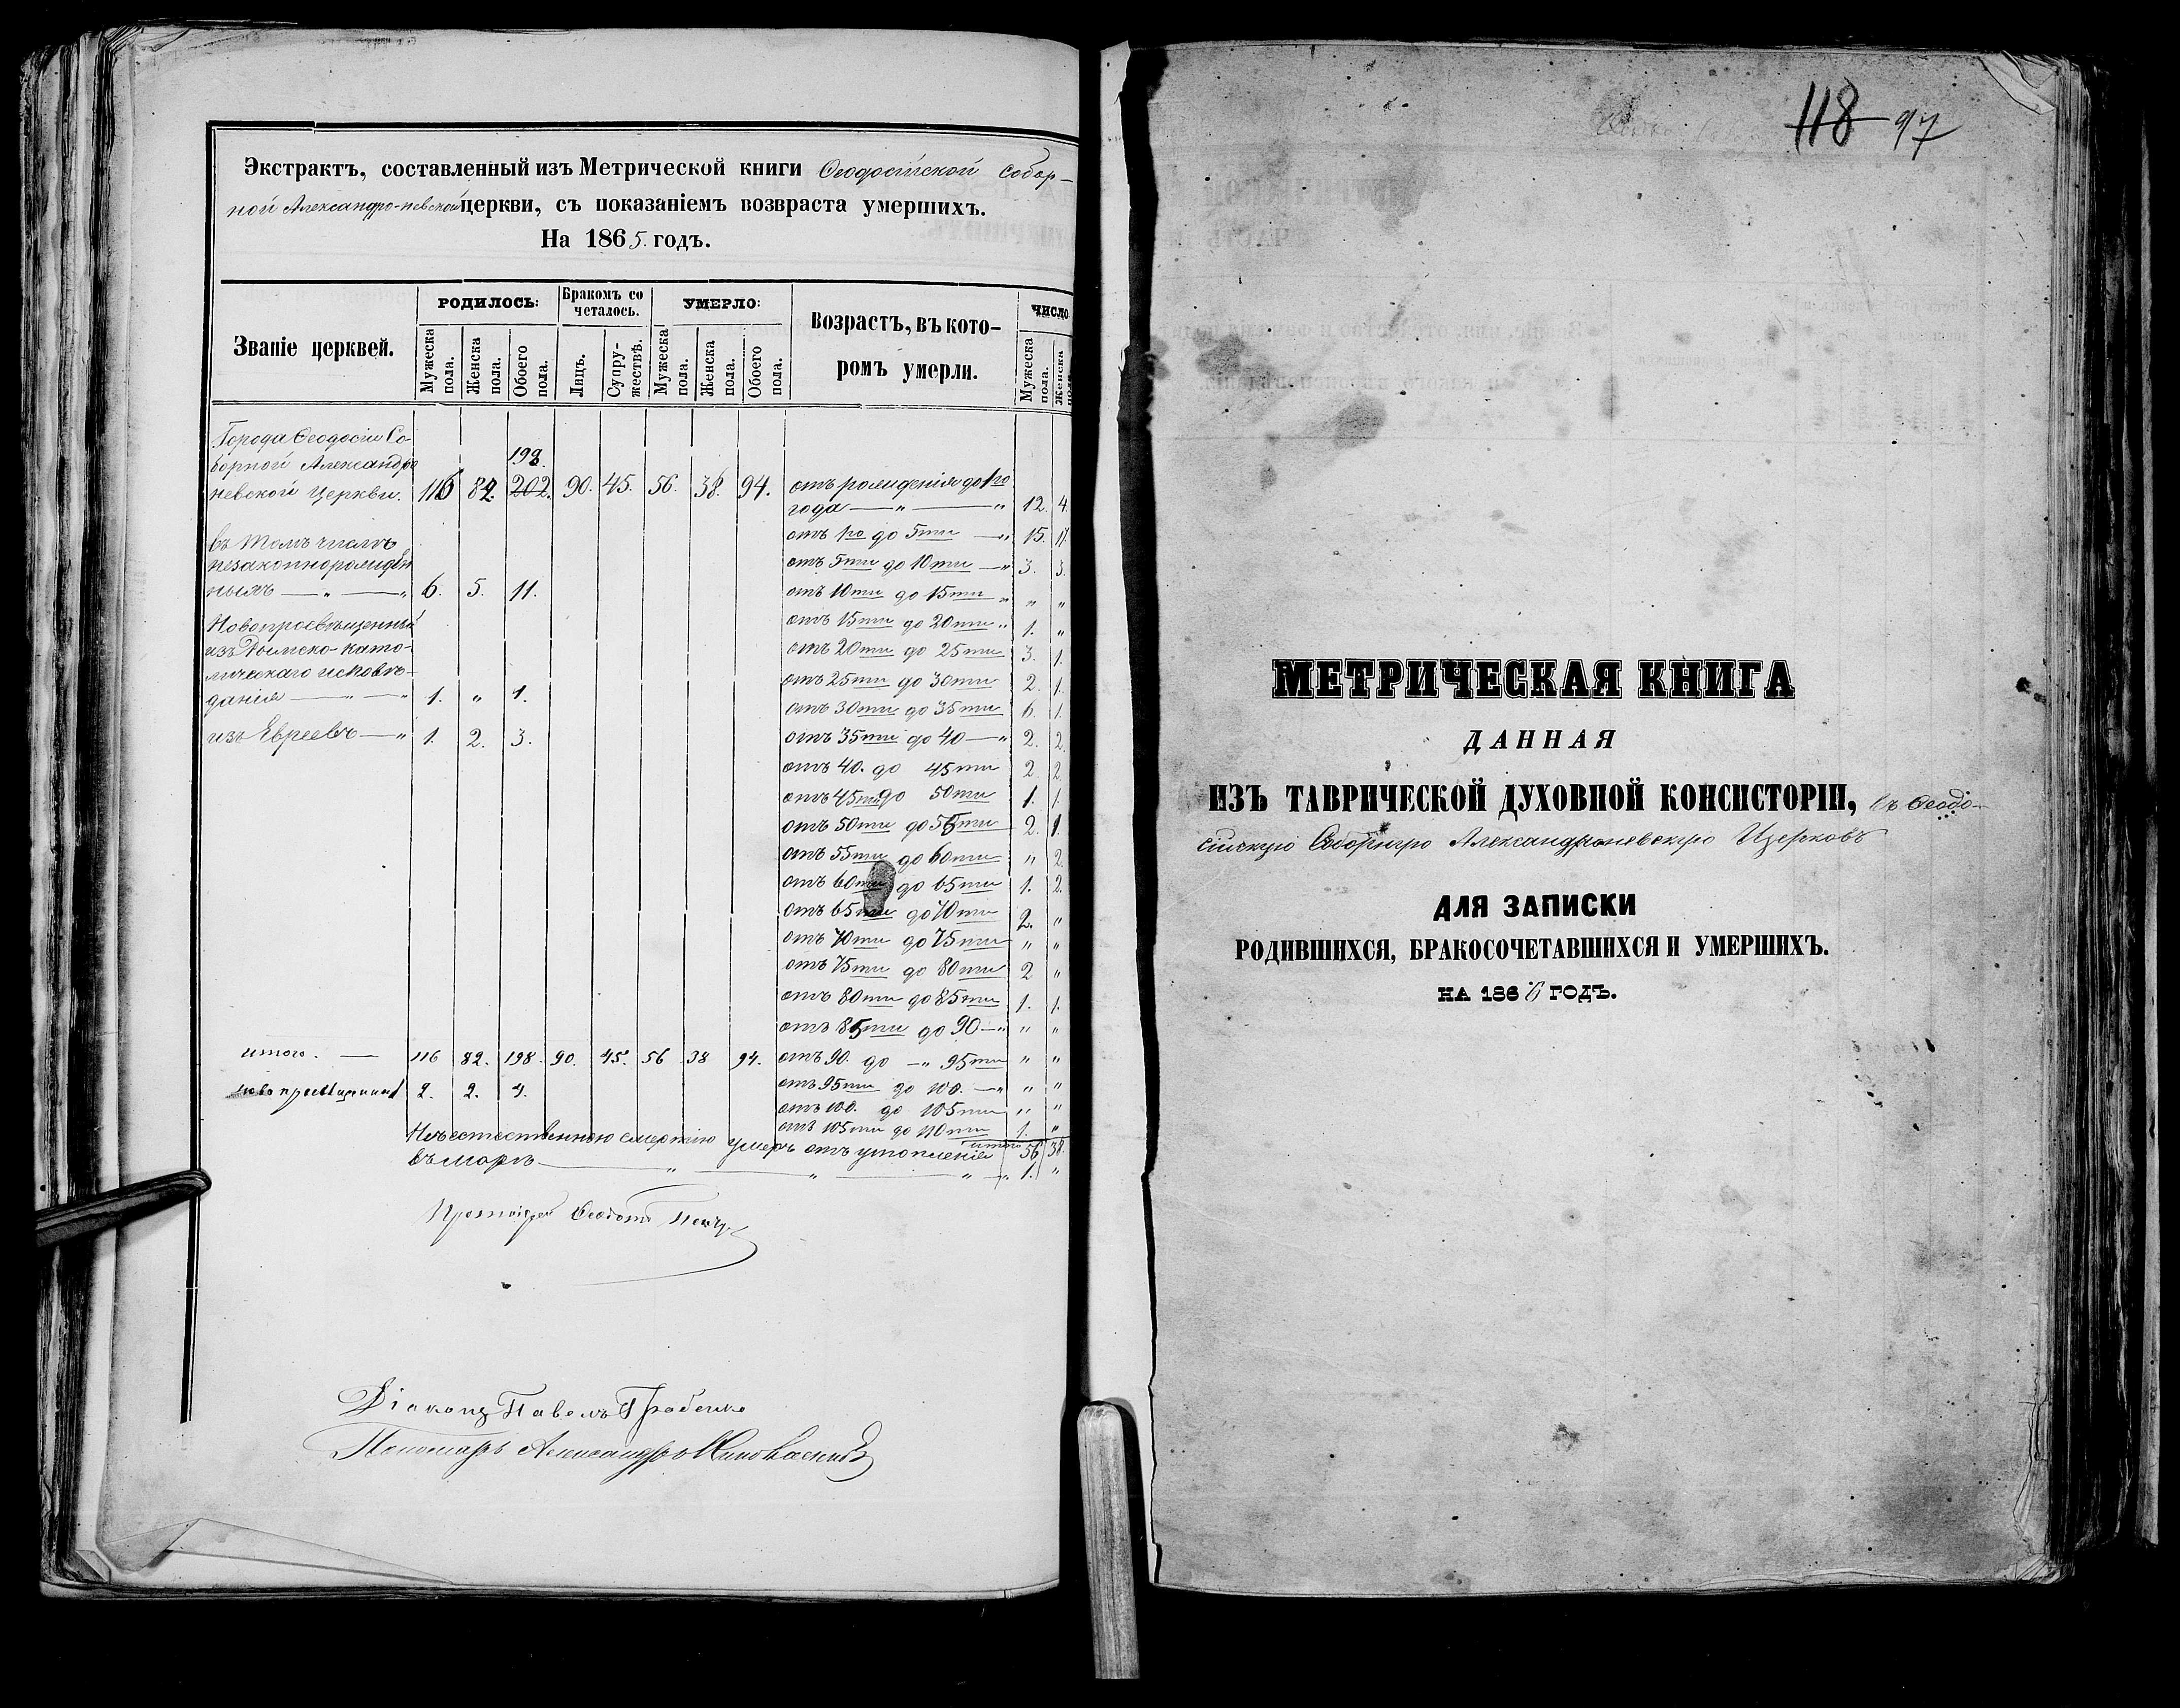 Экстрактъ, составленный изъ Метрической книги Ѳеодосійской Собор-
ной Александро-невской церкви, съ показаніемъ возвраста умершихъ.
На 1865. годъ.
Званіе церквей.
РОДИЛОСЬ:
Бракомъ со
четалось.
УМЕРЛО:
Возрастъ, въ кото-
ромъ умерли.
ЧИСЛО
Мужеска пола.
Женска пола.
Обоего пола.
Лицъ.
Супру-
жествъ.
Мужеска пола.
Женска пола.
Обоего пола.
Мужеска пола.
Женска пола.
Города Ѳеодосіи Со-
борной Александро
198.
невской Церкви. 116 82. 202. 90. 45. 56. 38. 94. отъ рожденія до 1го
года — „ — „ 12. 4.
въ томъ числѣ отъ 1го до 5ти — „ 15. 17.
незаконнорожден отъ 5ти до 10ти — „ 3. 3.
ныхъ — „ — „ 6. 5. 11. отъ 10ти до 15ти „ „ „
Новопросвѣщенный отъ 15ти до 20ти „ 1. „
изъ Римско-като- отъ 20ти до 25ти 3. 1.
лическаго исповѣ- отъ 25ти до 30ти 2. 1.
данія — „ 1. „ 1. отъ 30ти до 35ти 6. 1.
изъ Евреевъ — „ 1. 2. 3. отъ 35ти до 40 — „ 2. 2.
отъ 40. до 45ти 2. 2.
отъ 45ти до 50ти 1. 1.
отъ 50ти до 55ти 2. 1.
отъ 55ти до 60ти „ 2.
отъ 60ти до 65ти 1. 2.
отъ 65ти до 70ти 2. „
отъ 70ти до 75ти „ „
отъ 75ти до 80ти 2 „
отъ 80ти до 85ти 1. 1.
отъ 85ти до 90 — „ „ „
итого. — 116 82. 198. 90. 45. 56 38 94. отъ 90. до — „ 95ти „ „
2. 2. 4. отъ 95ти до 100. — „ „ „
отъ 100. до 105ти „ „
отъ 105ти до 110ти 1. „
итого 56 38.
Неъестественною смертію умеръ отъ утопленія
въ морѣ — „ — „ — „ — „ 1. „
Протоіерей Ѳеодотъ
Діаконъ Павелъ Грабенко
Пономарь Александръ
118 97
МЕТРИЧЕСКАЯ КНИГА
ДАННАЯ
ИЗЪ ТАВРИЧЕСКОЙ ДУХОВНОЙ КОНСИСТОРІИ, въ Ѳеодо-
сійскую Соборную Александроневскую Церковь
ДЛЯ ЗАПИСКИ
РОДИВШИХСЯ, БРАКОСОЧЕТАВШИХСЯ И УМЕРШИХЪ.
НА 1866 ГОДЪ.